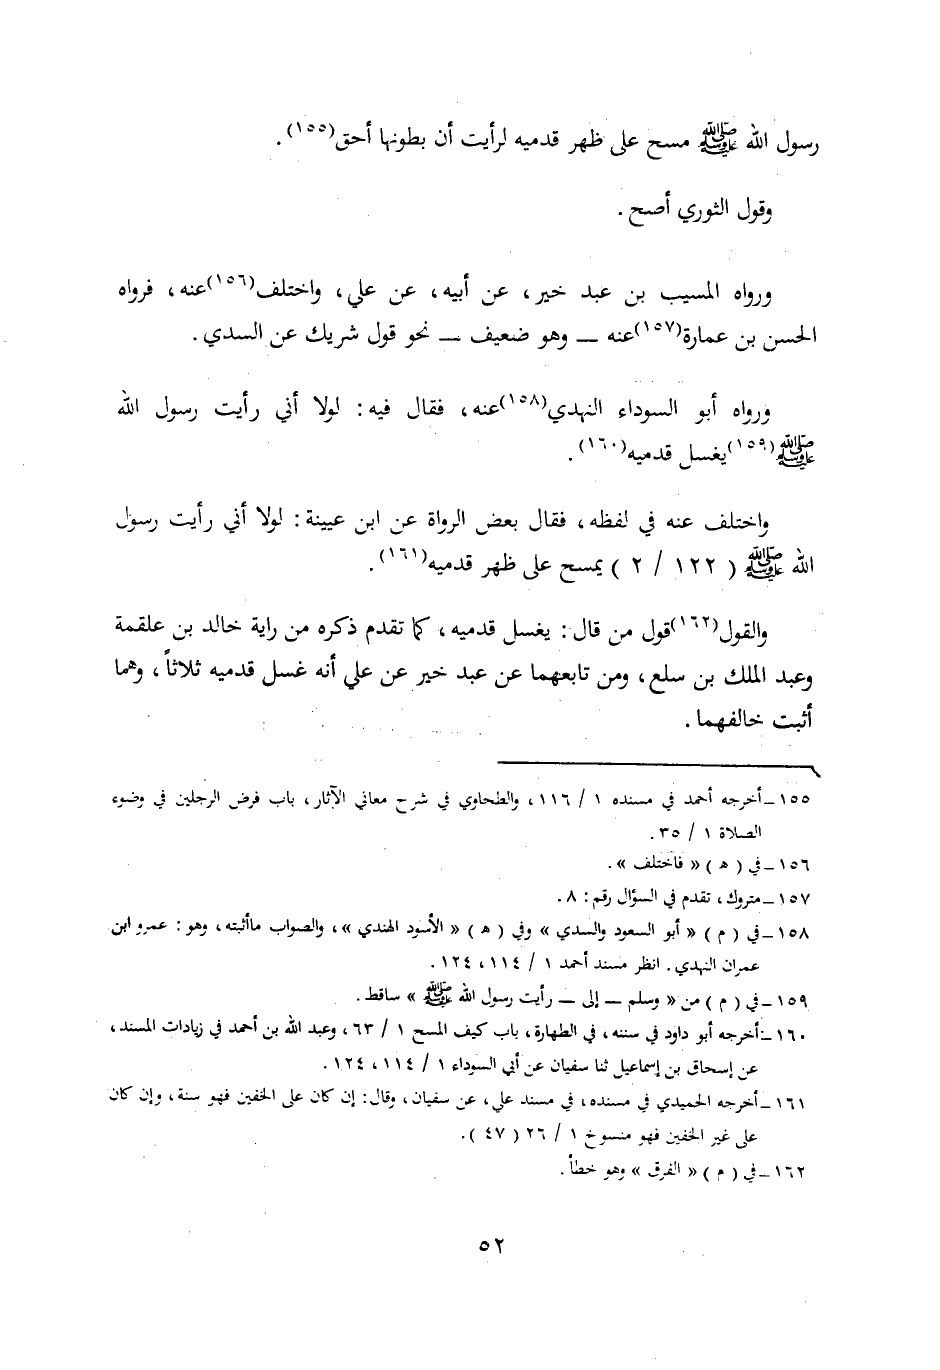 رسول الله ﷺ مسح على ظهر قدميه لرأيت أن بطونها أحق(١٥٥).
وقول الثوري أصح.
ورواه المسيب بن عبد خير، عن أبيه، عن علي، واختلف(١٥٦)عنه، فرواه
الحسن بن عمارة(١٥٧)عنه ــ وهو ضعيف ــ نحو قول شريك عن السدي.
ورواه أبو السوداء النهدي(١٥٨)عنه، فقال فيه: لولا أني رأيت رسول الله
ﷺ(١٥٩)يغسل قدميه(١٦٠).
واختلف عنه في لفظه، فقال بعض الرواة عن ابن عيينة: لولا أني رأيت رسول
الله ﷺ ( ١٢٢ / ٢ ) يمسح على ظهر قدميه(١٦١).
والقول(١٦٢)قول من قال: يغسل قدميه، كما تقدم ذكره من راية خالد بن علقمة
وعبد الملك بن سلع، ومن تابعهما عن عبد خير عن علي أنه غسل قدميه ثلاثاً، وهما
أثبت خالفهما.
١٥٥ـ أخرجه أحمد في مسنده ١ / ١١٦، والطحاوي في شرح معاني الآثار، باب فرض الرجلين في وضوء
الصلاة ١ / ٣٥.
١٥٦ـ في ( هـ ) « فاختلف ».
١٥٧ـ متروك، تقدم في السؤال رقم: ٨.
١٥٨ـ في ( م ) « أبو السعود والسدي » وفي ( هـ ) « الأسود الهندي »، والصواب ماأثبته، وهو: عمرو ابن
عمران النهدي. انظر مسند أحمد ١ / ١١٤، ١٢٤.
١٥٩ـ في ( م ) من « وسلم ــ إلى ــ رأيت رسول الله ﷺ » ساقط.
١٦٠ـ أخرجه أبو داود في سننه، في الطهارة، باب كيف المسح ١ / ٦٣، وعبد الله بن أحمد في زيادات المسند،
عن إسحاق بن إسماعيل ثنا سفيان عن أبي السوداء ١ / ١١٤، ١٢٤.
١٦١ـ أخرجه الحميدي في مسنده، في مسند علي، عن سفيان، وقال: إن كان على الخفين فهو سنة، وإن كان
على غير الخفين فهو منسوخ ١ / ٢٦ ( ٤٧ ).
١٦٢ـ في ( م ) « الفرق » وهو خطأ.
٥٢